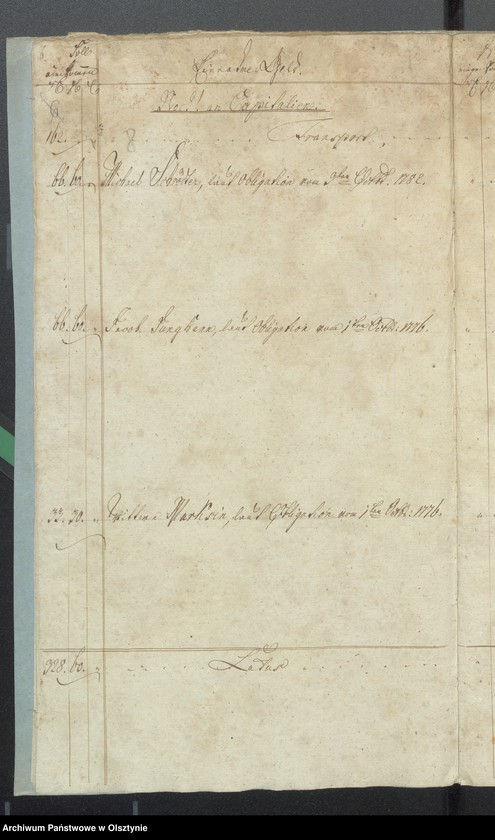 Soll
einkommen
Einnahme Geld.
Rth. Gr.
An Capitalien.
162. Transport.
66. 60. Michael Schröter, laut Obligation vom 9ten Octbr. 1782.
66. 60. Jacob Jungkann, laut Obligation vom 1ten Octbr: 1776.
33. 30. Wittwe Marksin, laut Obligation vom 1ten Octbr: 1776.
328. 60. Latus
Archiwum Państwowe w Olsztynie